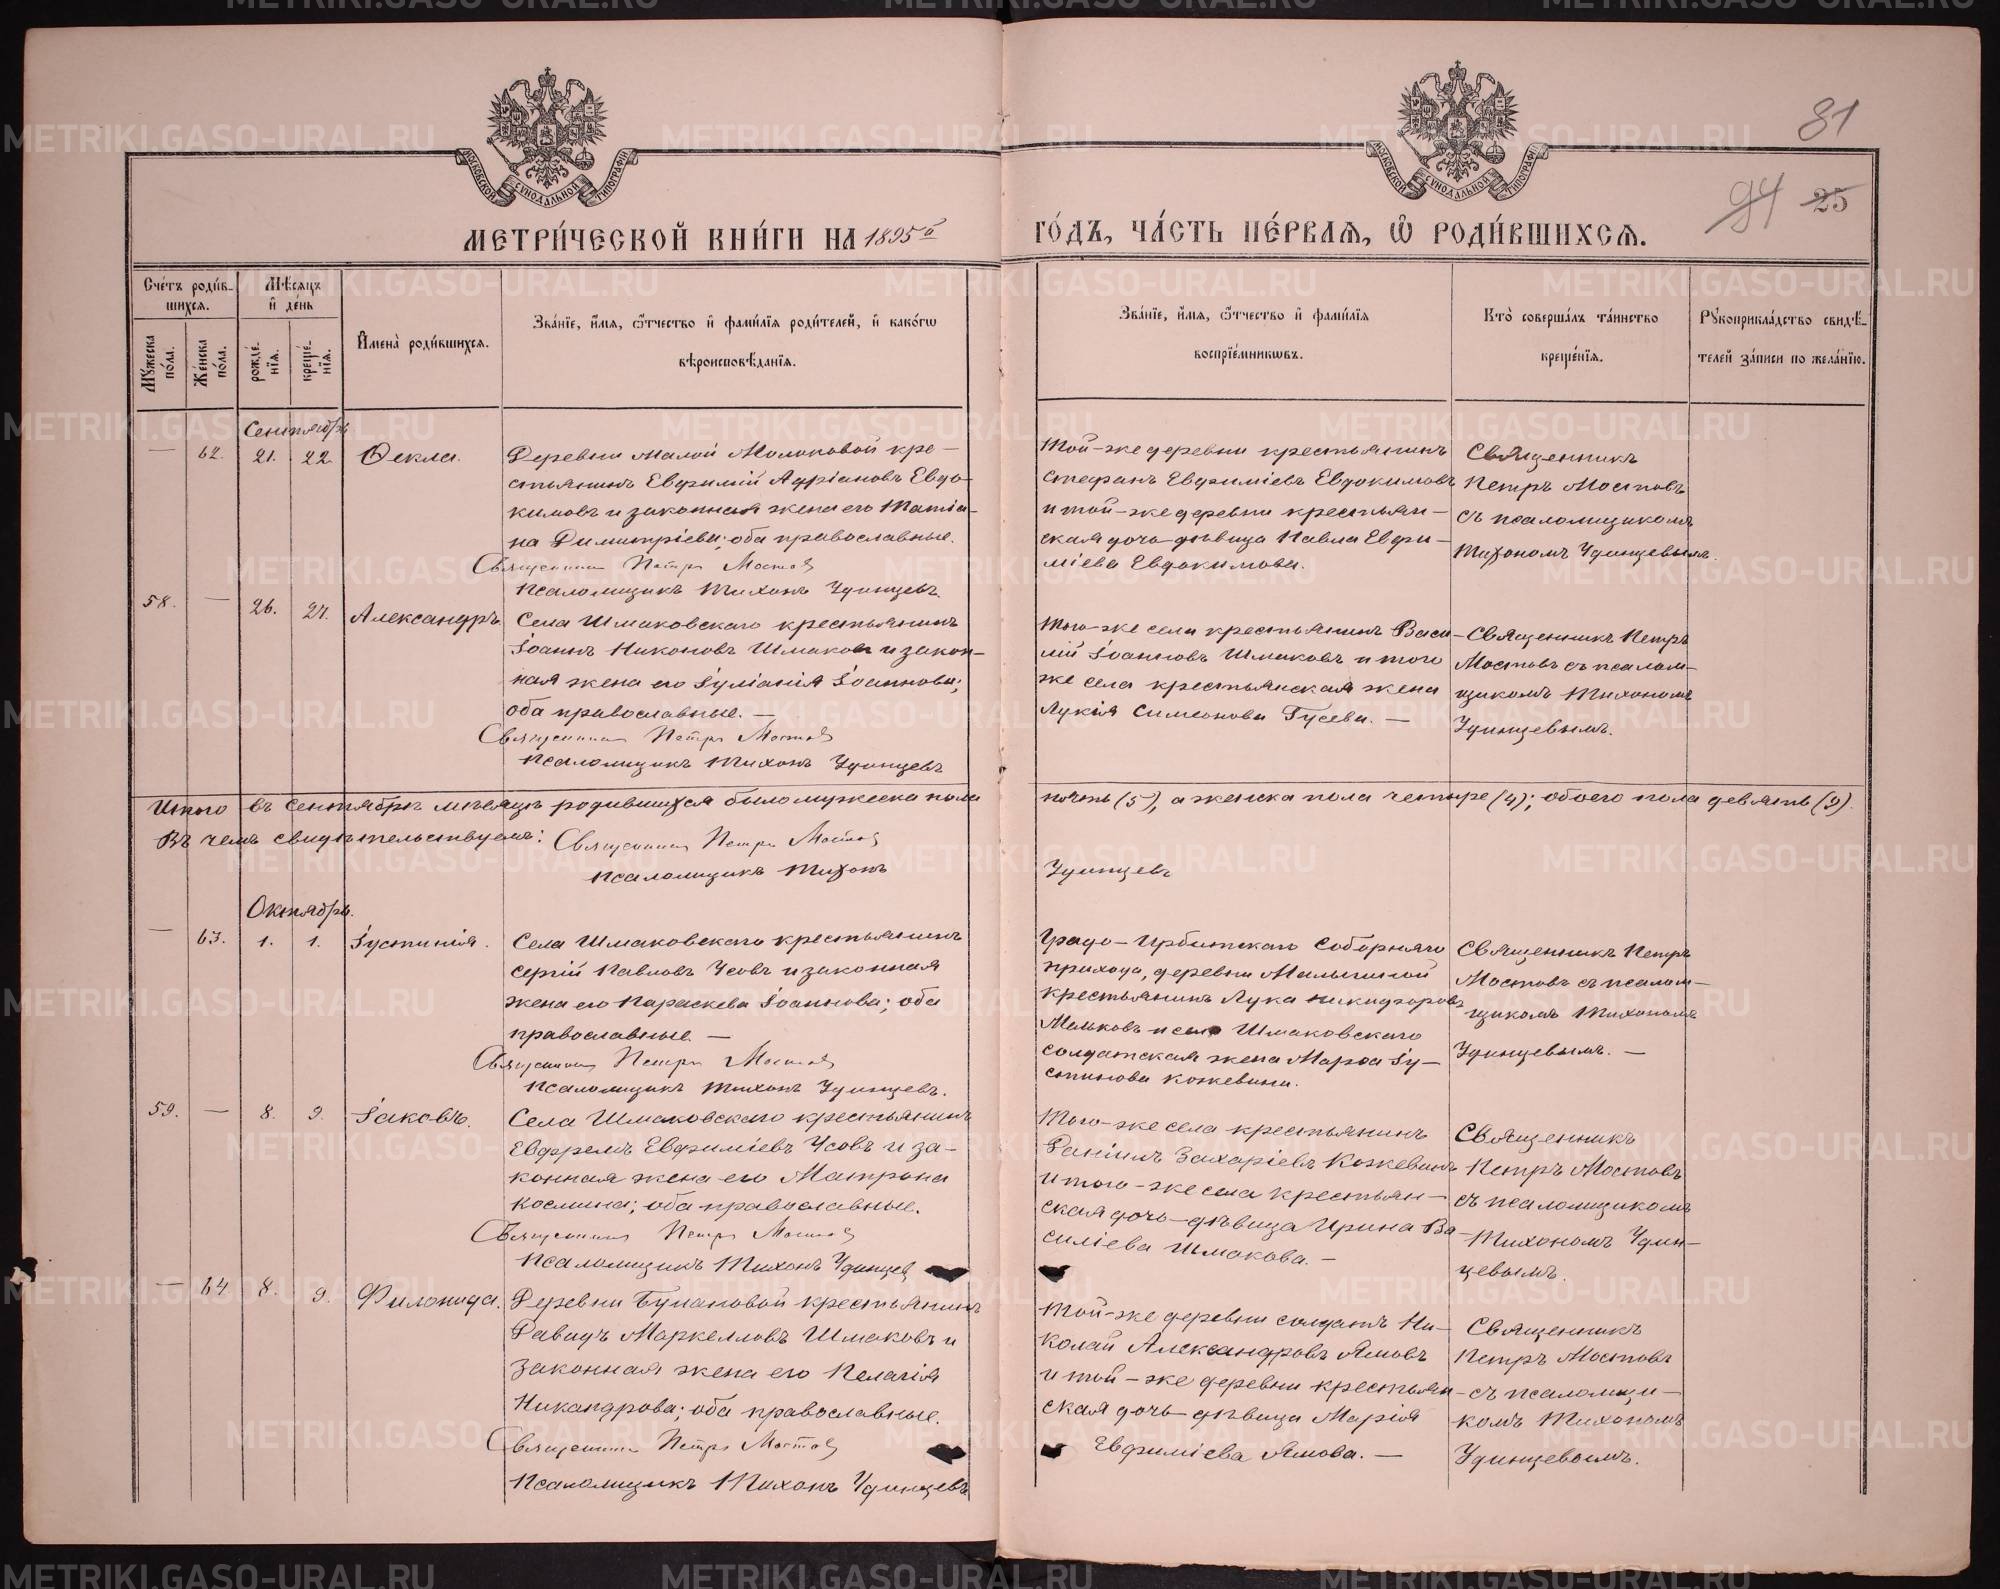 МОСКОВСКОЙ СУНОДАЛЬНОЙ ТИПОГРАФІИ
МОСКОВСКОЙ СУНОДАЛЬНОЙ ТИПОГРАФІИ
81
94 25
МЕТРИ́ЧЕСКОЙ КНИ́ГИ НА 1895й ГО́ДЪ, ЧА́СТЬ ПЕ́РВАЯ, Ѽ РОДИ́ВШИХСЯ.
Сче́тъ роди́в-
шихся.
Мѣ́сяцъ
и҆ де́нь
Мꙋ́жеска по́ла.
Же́нска по́ла.
рожде́-
нїѧ.
креще́-
нїѧ.
И҆мена̀ роди́вшихся.
Зва́нїе, и҆́мя, ѻ҆́тчество и҆ фами́лїя роди́телей, и҆ како́гѡ
вѣроисповѣ́данїя.
Зва́нїе, и҆́мя, ѻ҆́тчество и҆ фами́лїя
воспрїе́мникѡвъ.
Кто̀ соверша́лъ та́инство
креще́нїя.
Рꙋкоприкла́дство свидѣ́-
телей за́писи по жела́нїю.
Сентябрь
— 62. 21. 22. Ѳекла.
Деревни Малой Молоковой кре-
стьянинъ Евфимій Адріановъ Евдо-
кимовъ и законная жена его Татіа-
на Димитріева; оба православные.
Священникъ Петръ Мостовъ
Псаломщикъ Тихонъ Удинцевъ.
Той-же деревни крестьянинъ
Стефанъ Евфиміевъ Евдокимовъ
и той-же деревни крестьян-
ская дочь-дѣвица Павла Евфи-
міева Евдокимова.
Священникъ
Петръ Мостовъ
съ псаломщикомъ
Тихономъ Удинцевымъ.
58. — 26. 27. Александръ.
Села Шмаковскаго крестьянинъ
Іоаннъ Никоновъ Шмаковъ и закон-
ная жена его Іуліанія Іоаннова;
оба православные. —
Священникъ Петръ Мостовъ
Псаломщикъ Тихонъ Удинцевъ
Того-же села крестьянинъ Васи-
лій Іоанновъ Шмаковъ и того
же села крестьянская жена
Лукія Симеонова Гусева. —
Священникъ Петръ
Мостовъ съ псалом-
щикомъ Тихономъ
Удинцевымъ.
Итого въ сентябрѣ мѣсяцѣ родившихся было мужеска пола пять (5), а женска пола четыре (4); обоего пола девять (9).
Въ чемъ свидѣтельствуемъ: Священникъ Петръ Мостовъ
Псаломщикъ Тихонъ Удинцевъ
Октябрь.
— 63. 1. 1. Іустинія.
Села Шмаковскаго крестьянинъ
Сергій Павловъ Усовъ и законная
жена его Параскева Іоаннова; оба
православные —
Священникъ Петръ Мостовъ
Псаломщикъ Тихонъ Удинцевъ.
Градо-Ирбитскаго Соборнаго
прихода, деревни Мальгиной
крестьянинъ Лука Никифоровъ
Мальковъ и села Шмаковскаго
солдатская жена Марѳа Іу-
стинова Кожевина.
Священникъ Петръ
Мостовъ съ псалом-
щикомъ Тихономъ
Удинцевымъ. —
59. — 8. 9. Іаковъ.
Села Шмаковскаго крестьянинъ
Ефремъ Евфиміевъ Усовъ и за-
конная жена его Матрона
Космина; оба православные.
Священникъ Петръ Мостовъ
Псаломщикъ Тихонъ Удинцев
Того-же села крестьянинъ
Даніилъ Захаріевъ Кожевинъ
и того-же села крестьян-
ская дочь-дѣвица Ирина Ва-
силіева Шмакова. —
Священникъ
Петръ Мостовъ
съ псаломщикомъ
Тихономъ Удин-
цевымъ.
— 64 8. 9. Филонида.
Деревни Булановой крестьянинъ
Давидъ Маркелловъ Шмаковъ и
законная жена его Пелагія
Никандрова; оба православные.
Священникъ Петръ Мостовъ
Псаломщикъ Тихонъ Удинцевъ
Той-же деревни солдатъ Ни-
колай Александровъ Ямовъ
и той-же деревни крестьян-
ская дочь-дѣвица Марія
Евфиміева Ямова. —
Священникъ
Петръ Мостовъ
съ псаломщи-
комъ Тихономъ
Удинцевымъ.